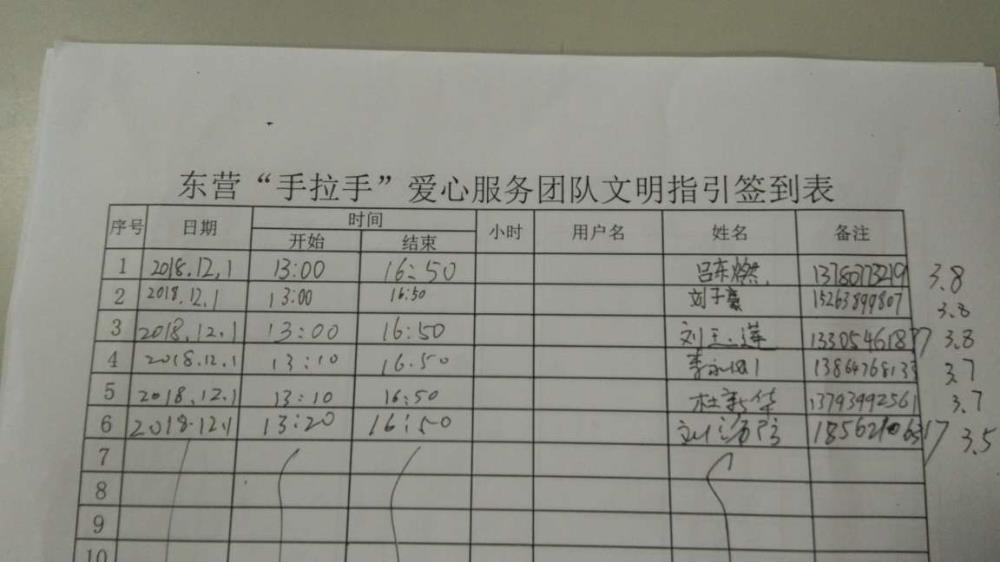 东营“手拉手”爱心服务团队文明指引签到表
序号 日期 时间 小时 用户名 姓名 备注
开始 结束
1 2018.12.1 13:00 16:50 吕东燃 13780773219 3.8
2 2018.12.1 13:00 16:50 刘子豪 15263899807 3.8
3 2018.12.1 13:00 16:50 刘玉莲 13305461837 3.8
4 2018.12.1 13:10 16.50 李 13864768133 3.7
5 2018.12.1 13:10 16:50 杜新华 13793992561 3.7
6 2018.12.1 13:20 16:50 刘 18562106317 3.5
7
8
9
10